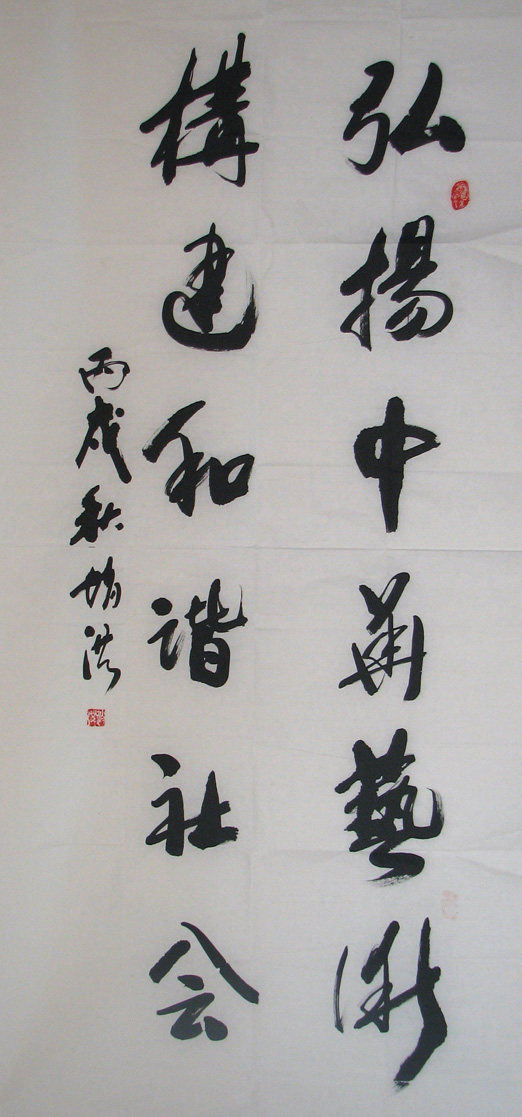 弘揚中華藝術
構建和谐社会
丙戌秋